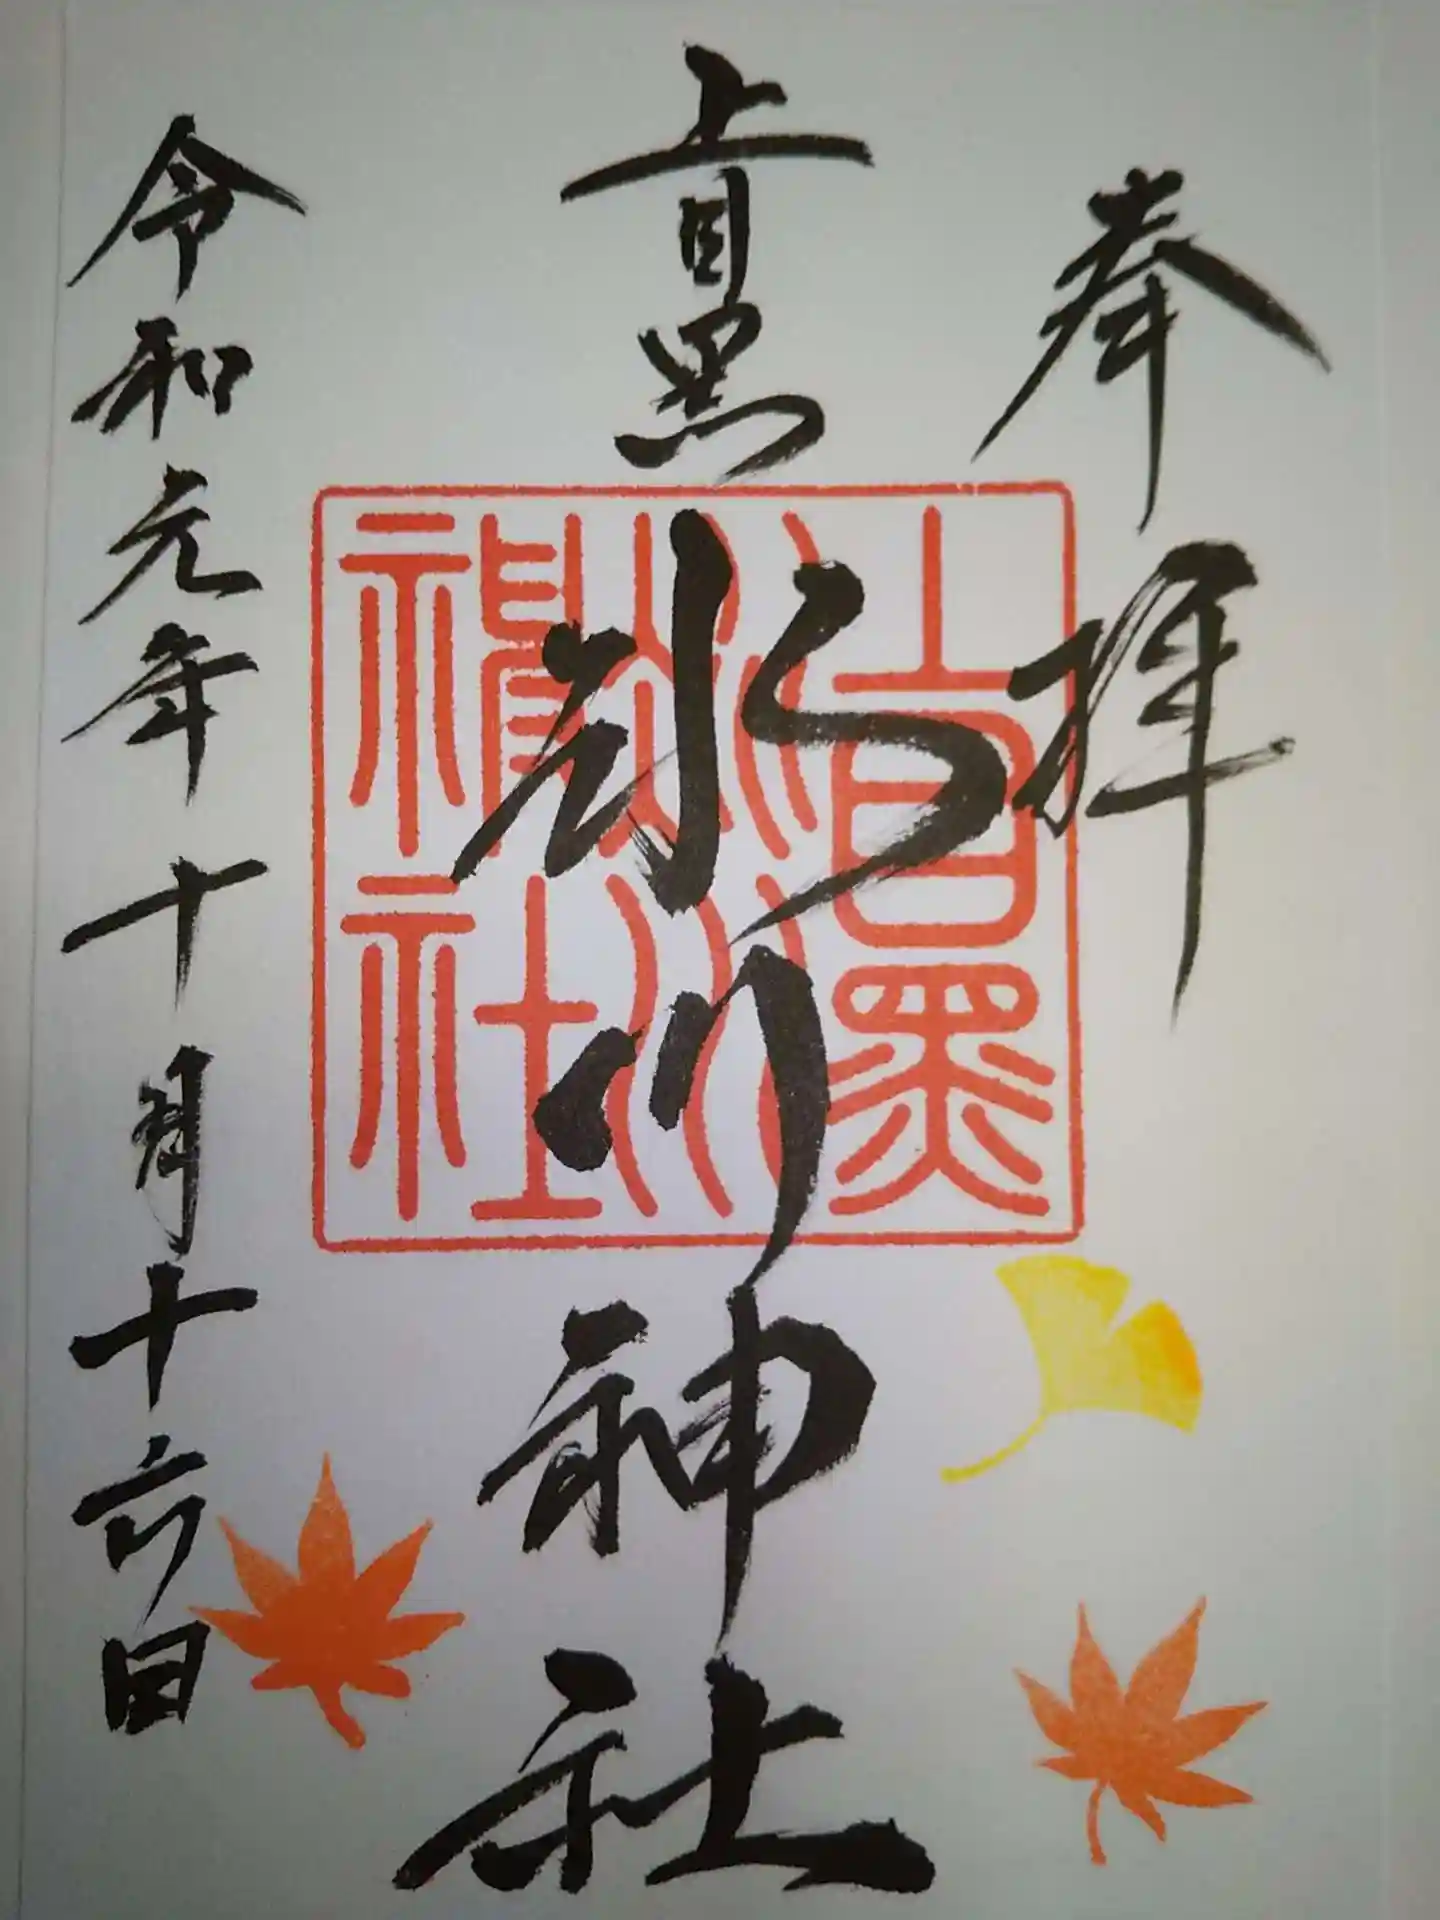 奉拝
上目黒
氷川神社
令和元年十月十六日
上目黒
氷川
神社